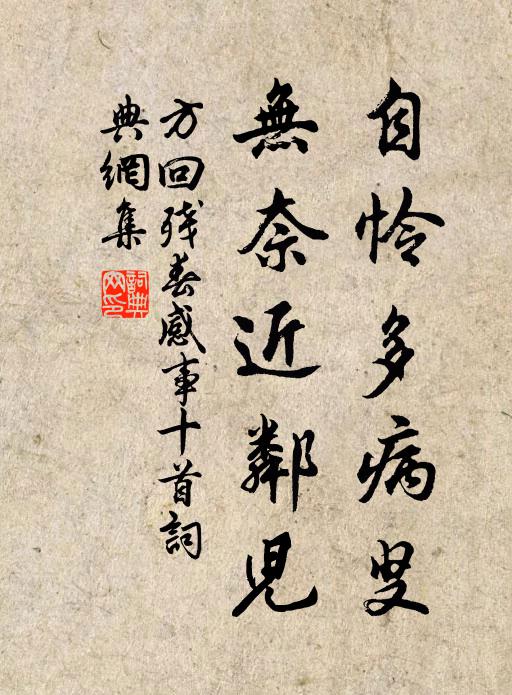 自怜多病叟
無奈近鄰児
方回残春感事十首詞
典網集
詞典網印